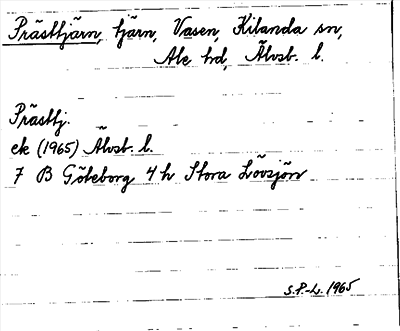 Prästtjärn, tjärn, Vasen, Kilanda sn,
Ale hd, Älvsb. l.
Prästtj.
ek (1965) Älvsb. l.
7 B Göteborg 4 h Stora Lövsjön
S.P-L. 1965